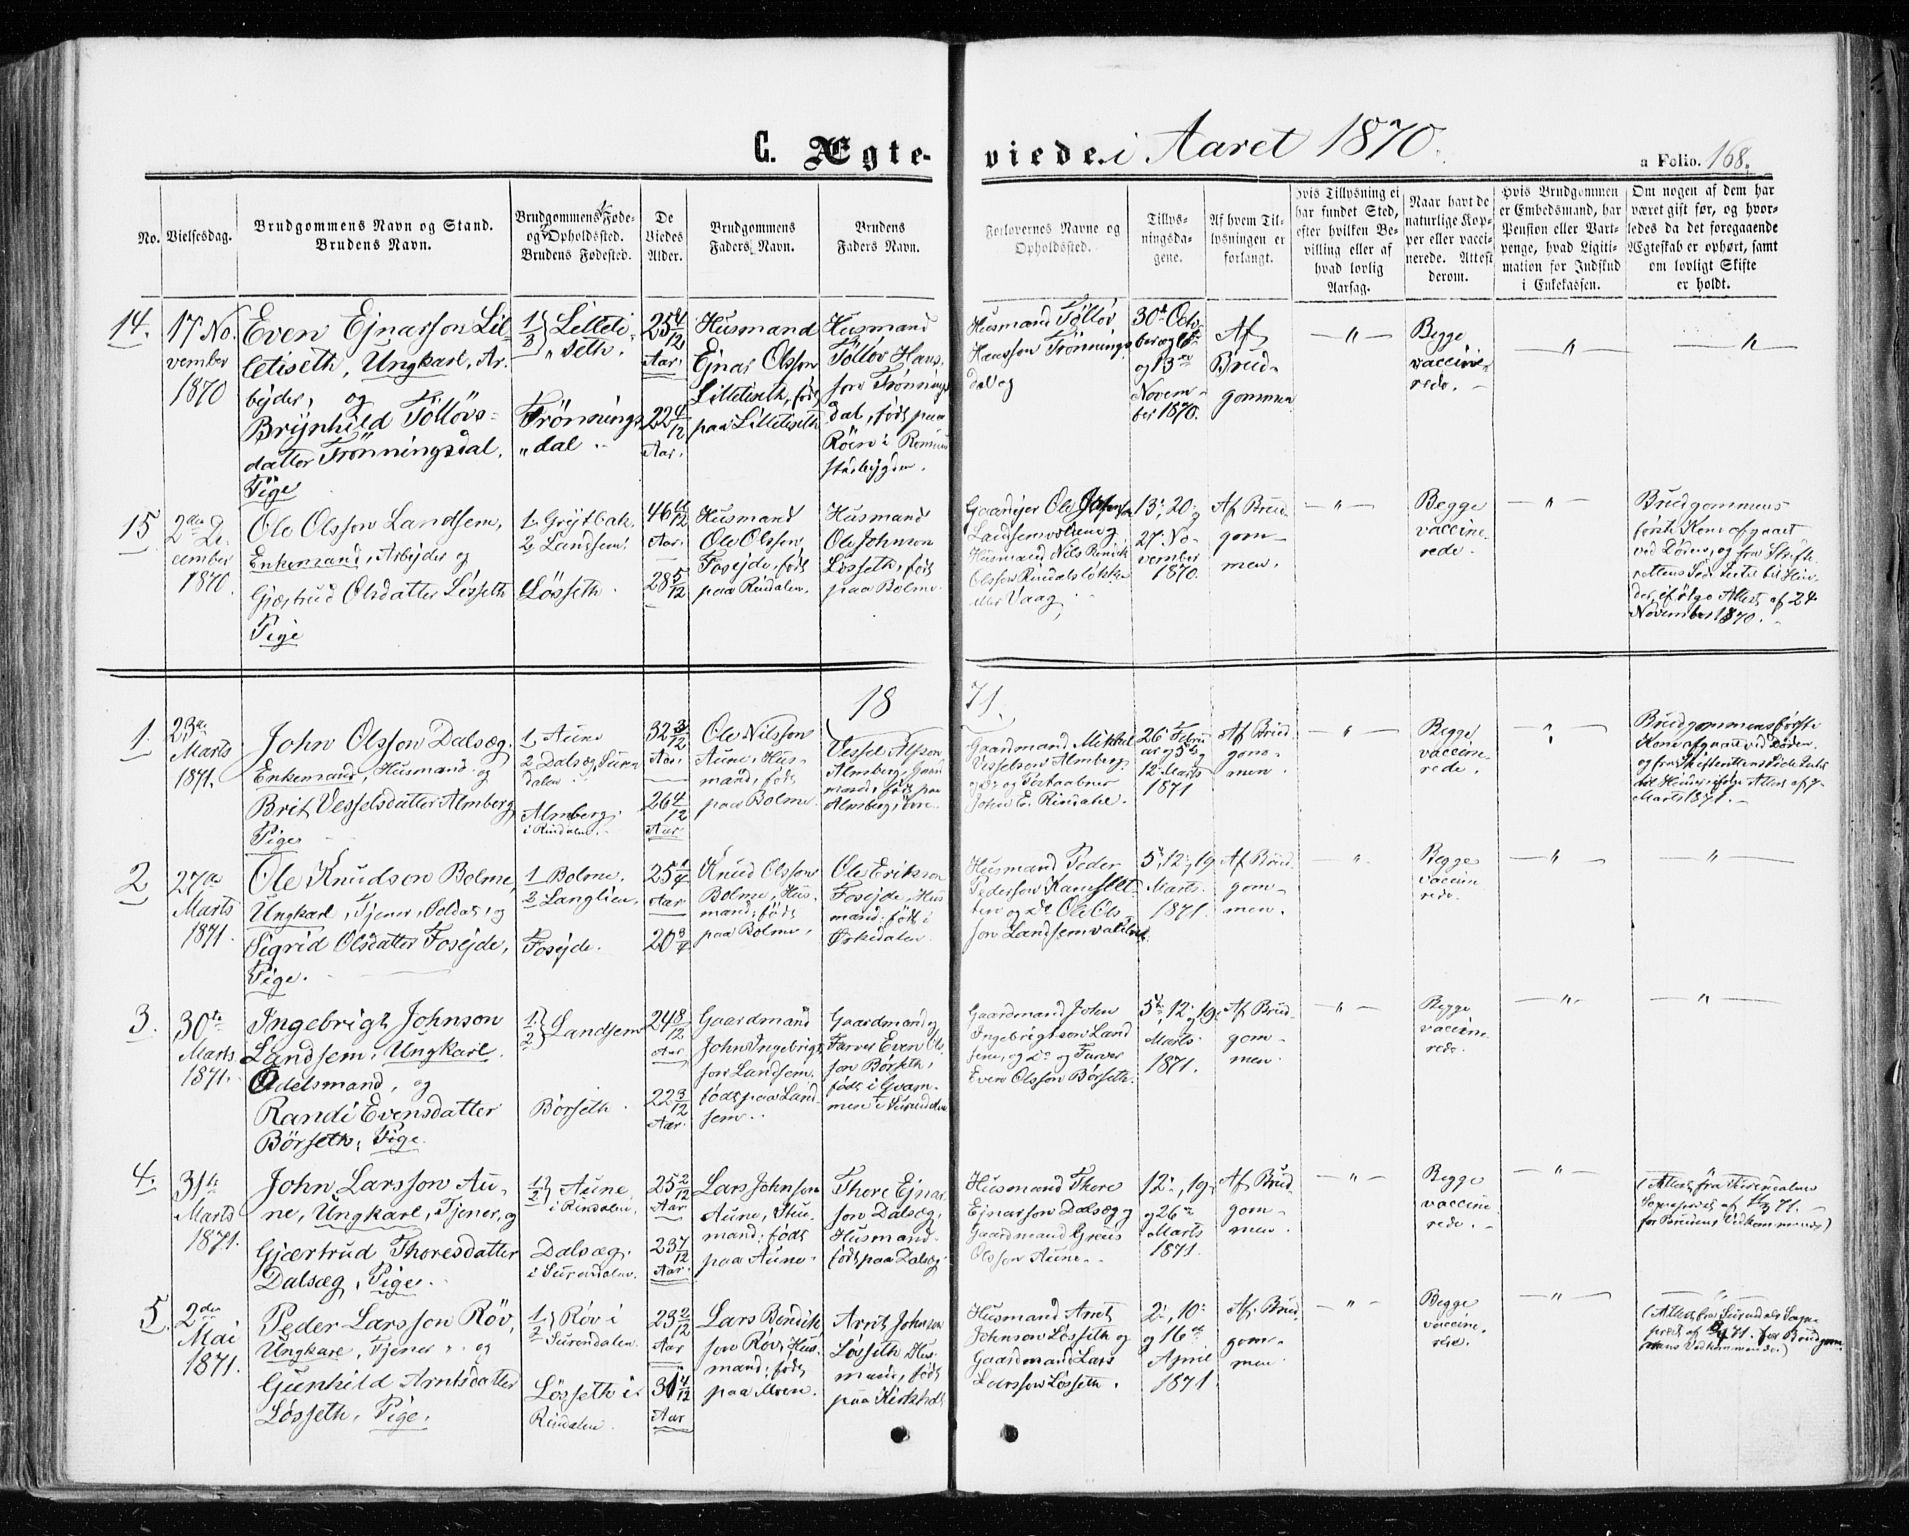 C. Ægte-
viede. i Aaret 1870.
a Folio. 168.
No.
Vielsesdag.
Brudgommens Navn og Stand.
Brudens Navn.
Brudgommens Føde-
og Opholdssted.
Brudens Fødested.
De
Viedes
Alder.
Brudgommens
Faders Navn.
Brudens
Faders Navn.
Forlovernes Navne og
Opholdssted.
Tillys-
ningsda-
gene.
Af hvem Til-
lysningen er
forlangt.
Hvis Tillysning ei
har fundet Sted,
efter hvilken Be-
villing eller af
hvad lovlig
Aarsag.
Naar havt de
naturlige Kop-
per eller vacci-
nerede. Attest
derom.
Hvis Brudgommen
er Embedsmand, har
Pension eller Vart-
penge, hvad Ligiti-
mation for Indskud
i Enkekassen.
Om nogen af dem har
været gift før, og hvor-
ledes da det foregaaende
Ægteskab er ophørt, samt
om lovligt Skifte
er holdt.
14.
17 No
vember
1870
Even Ejnarsson Lil-
letiseth, Ungkarl, Ar-
bejder, og
Brynhild Tölløvs-
datter Trønningsdal,
Pige
1
2 } Litleti
"seth.
Trønnings
"dal
25 4/12
Aar.
22 4/12
Aar.
Husmand
Ejnar Olsson
Litletiseth, født
paa Litletiseth
Husmand
Tölløv Hans-
son Trønnings
dal, født paa
Röen i Rennu
stadbygden.
Husmand Tölløv
Hansson Trønnings
dal og
30te Octo-
ber og 6te
og 13de
Novem-
ber 1870.
Af
Brud-
gommen
— " —
Begge
vaccine-
rede. —
— " —
— " —
15
2den De
cember
1870.
Ole Olsson Landsem,
Enkemand, Arbejder og
Gjertrud Olsdatter Løsseth
Pige
1. Grytbak
2. Landsem.
Løsseth.
46 4/12
Aar.
28 5/12
Husmand
Ole Olsson
Fosejde, født
paa Rindalen.
Husmand
Ole Johnson
Løsseth, født
paa Bolme.
Gaardejer Ole
Landsemvolden og
Husmand Nils
Olsson Rindalsløkken
eller Vaag
13, 20 og
27 No-
vember
1870.
Af Brud-
gom-
men.
— " —
Begge
vaccine-
rede.
— " —
Brudgommens
første Kone afgaaet
ved Døden, og fra Skifte-
rettens Side Intet til Hin-
der, ifølge Attest af 24
November 1870.
18
71.
1
23de
Marts
1871.
John Olsson Dalsæg,
Enkemand, Husmand og
Brit Vesselsdatter Almberg,
Pige
1. Aune
2. Dalsæg, Suren
dalen.
Almberg
i Rindalen.
32 3/12
Aar.
26 4/12
Aar
Ole Nilsson
Aune, Hus-
mand, født
paa Bolme.
Vessel
Almberg, Gaard
mand, født paa
Almberg,
Gaardmand Mikkel
Vesselsøn Almberg,
og Do og Forstander
John E. Rindahl.
26 Febru
ar og 5te og
12 Marts
1871
Af Brud
gom-
men.
— " —
Begge
vaccine-
rede.
— " —
Brudgommens første
Kone afgaaet ved Døden
og fra Skifterettens Side Intet
til Hinder, ifølge Attest af 7
Marts 1871. —
2
27de
Marts
1871.
Ole Knudson Bolme,
Ungkarl, Tjener, Soldat, og
Sigrid Olsdatter Fosejde,
Pige.
1 Bolme.
2 Langlien.
Fosejde.
25 1/4
Aar
20 3/4
Knud Olsson
Bolme, Hus-
mand, født
paa Bolme
Ole Eriksøn
Fosejde, Hus
mand, født i
Orkedalen.
Husmand Peder
Pederson Kamslet
ten og Do Ole Ols-
son Landsemvalden.
5te, 12, og 19
Marts
1871.
Af Brud-
gom-
men.
— " —
Begge
vaccine-
rede.
— " —
— " —
3.
30te
Marts
1871.
Ingebrigt Johnson
Landsem, Ungkarl.
Odelsmand, og
Randi Evensdatter
Børseth, Pige.
1
2 } Landsem
Børseth.
24 8/12
Aar
22 3/12
Aar.
Gaardmand
John Ingebrigt
son Landsem,
født paa Land
sem.
Gaardmand og
Farver Even Ols
son Børseth,
født i Gvam-
men i Surendalen
Gaardmand John
Ingebrigtson Land
sem, og Do og Farver
Even Olsson Børseth.
5te, 12 og 19
Marts
1871.
Af Brud-
gom-
men.
— " —
Begge
vaccine-
rede.
— " —
— " —
4.
31te
Marts
1871.
John Larsson Au-
ne, Ungkarl, Tjener, og
Gjærtrud Thoresdatter
Dalsæg, Pige.
1
2 } Aune
i Rindalen.
Dalsæg
i Surendalen.
25 2/12
Aar
23 7/12
Aar.
Lars Johnson
Aune, Hus-
mand, født
paa Aune
Thore Ejnar-
son Dalsæg,
Husmand
født paa Dalsæg.
Husmand Thore
Ejnarsson Dalsæg og
Gaardmand
Olsson Aune.
12, 19
og 26
Marts
1871.
Af Brud-
gom-
men.
— " —
Begge
vaccine-
rede. —
— " —
(Attest fra Surendalens
Sognepræst af
for Brudens Vedkommende)
5.
2den
Mai
1871.
Peder Larsson Röv,
Ungkarl, Tjener, og
Gunhild Arntsdatter
Løsseth, Pige.
1
2 } Röv i
Surendalen.
Løsseth i
Rindalen.
23 2/12
Aar
31 4/12
Aar
Lars Bendik
son Röv, Hus-
mand, født
paa Moen.
Arnt Johnson
Løsseth Hus-
mand, født
paa Kirkholt
Husmand Arnt
Johnson Løsseth og
Gaardmand Lars
Larsson Løsseth.
2, 10
og 16
April
1871
Af Brud
gom-
men.
— " —
Begge
vaccine-
rede.
— " —
(Attest fra Surendals Sogne-
præst af 71. for Brudgom-
mens Vedkommende)